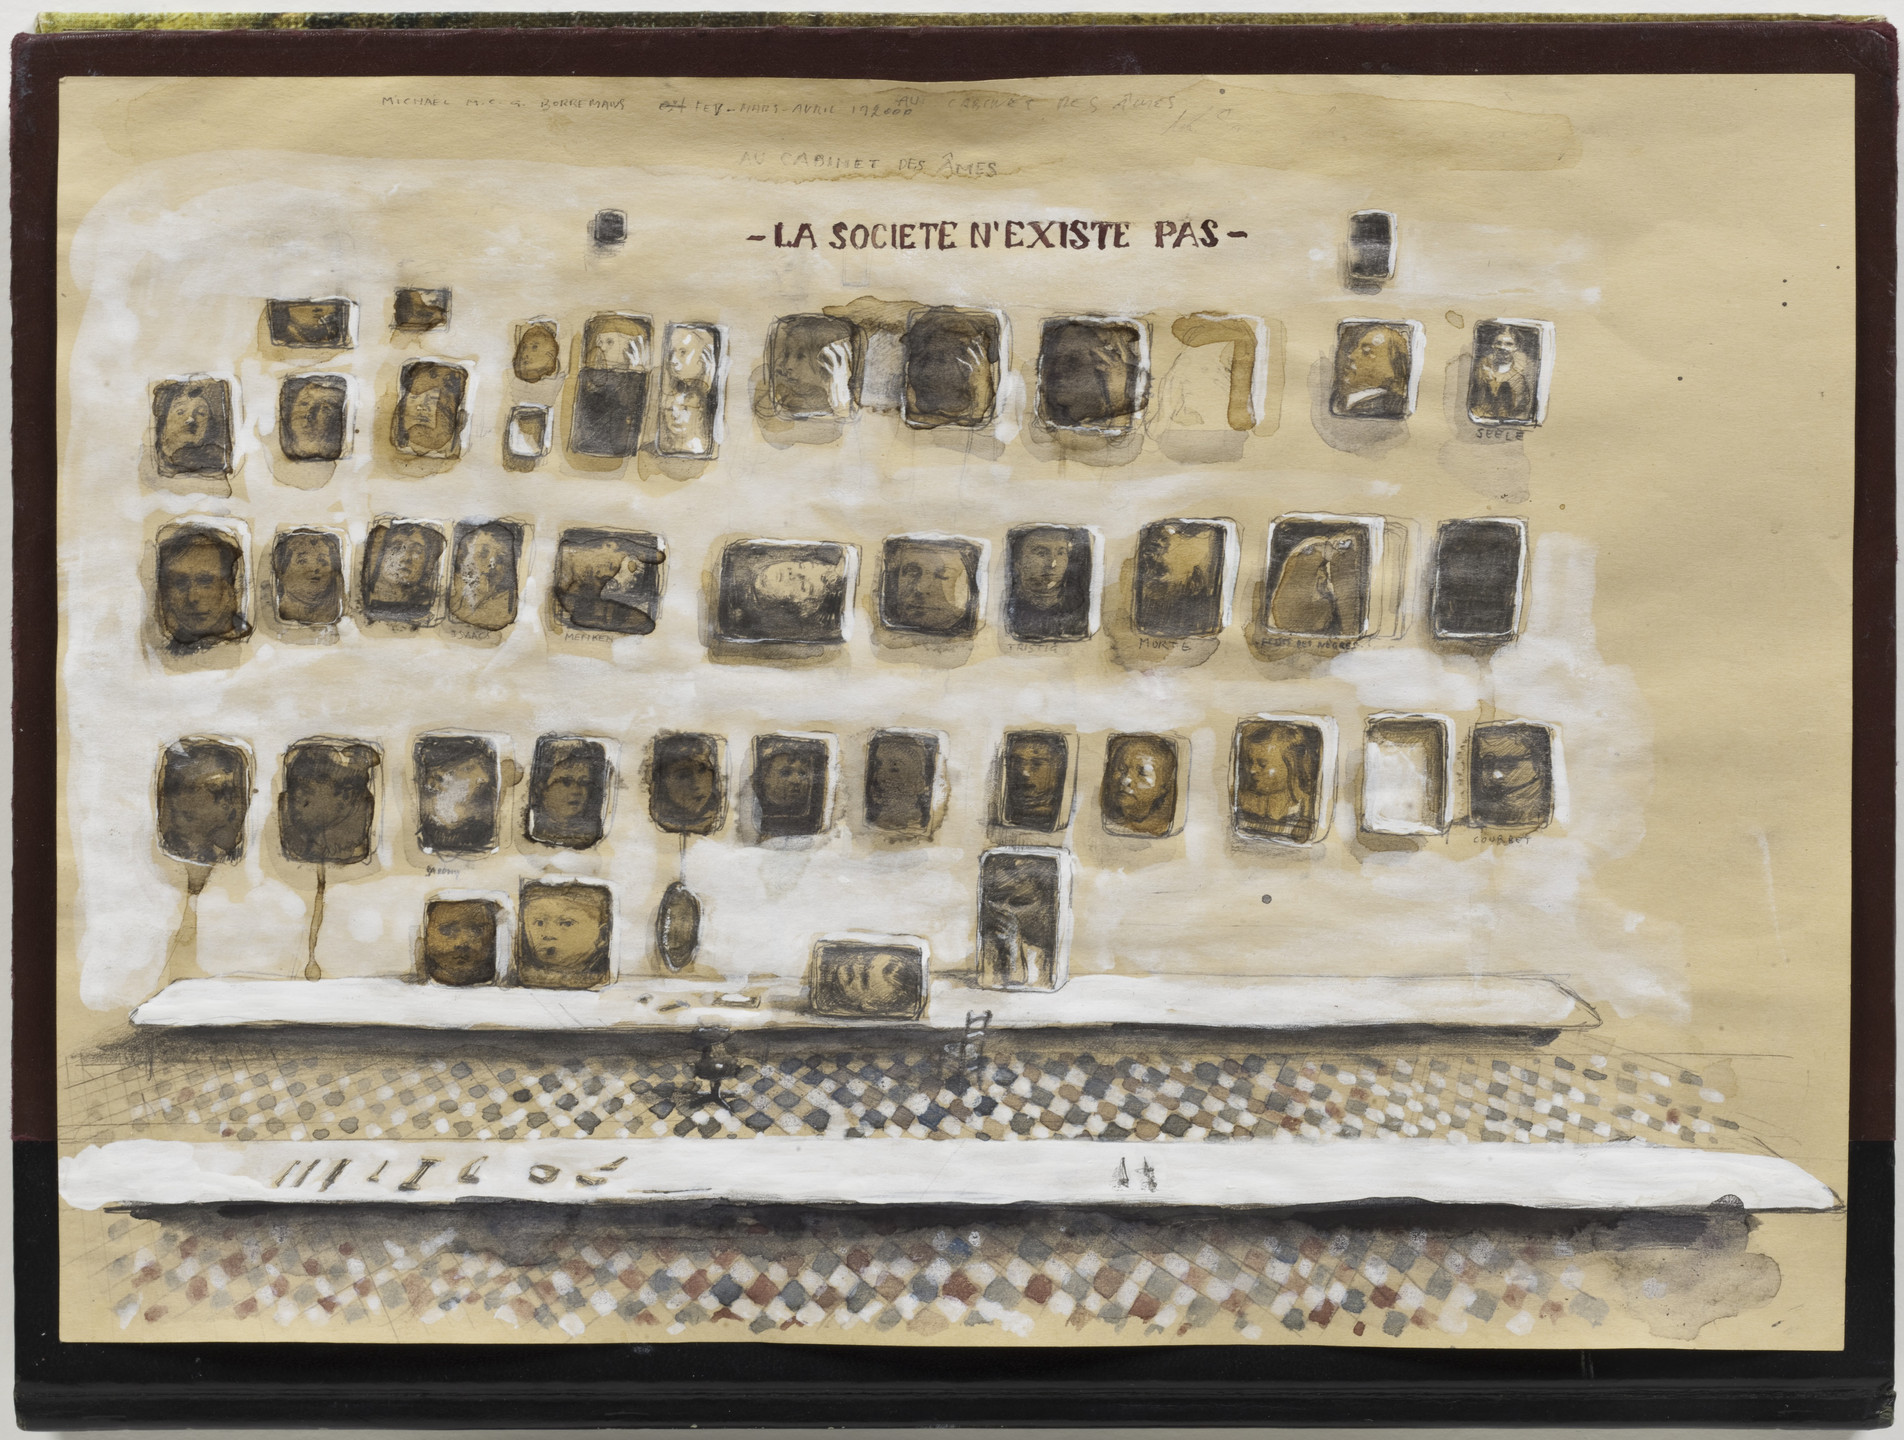 MICHAEL M.C.G. BORREMANS FEV-MARS-AVRIL 2000 AU CABINET DES ÂMES
AU CABINET DES ÂMES
-LA SOCIETE N'EXISTE PAS-
SEELE
ISAACS
MERIKEN
TRISTIA
MORTE
DES NÈGRES
COURBET